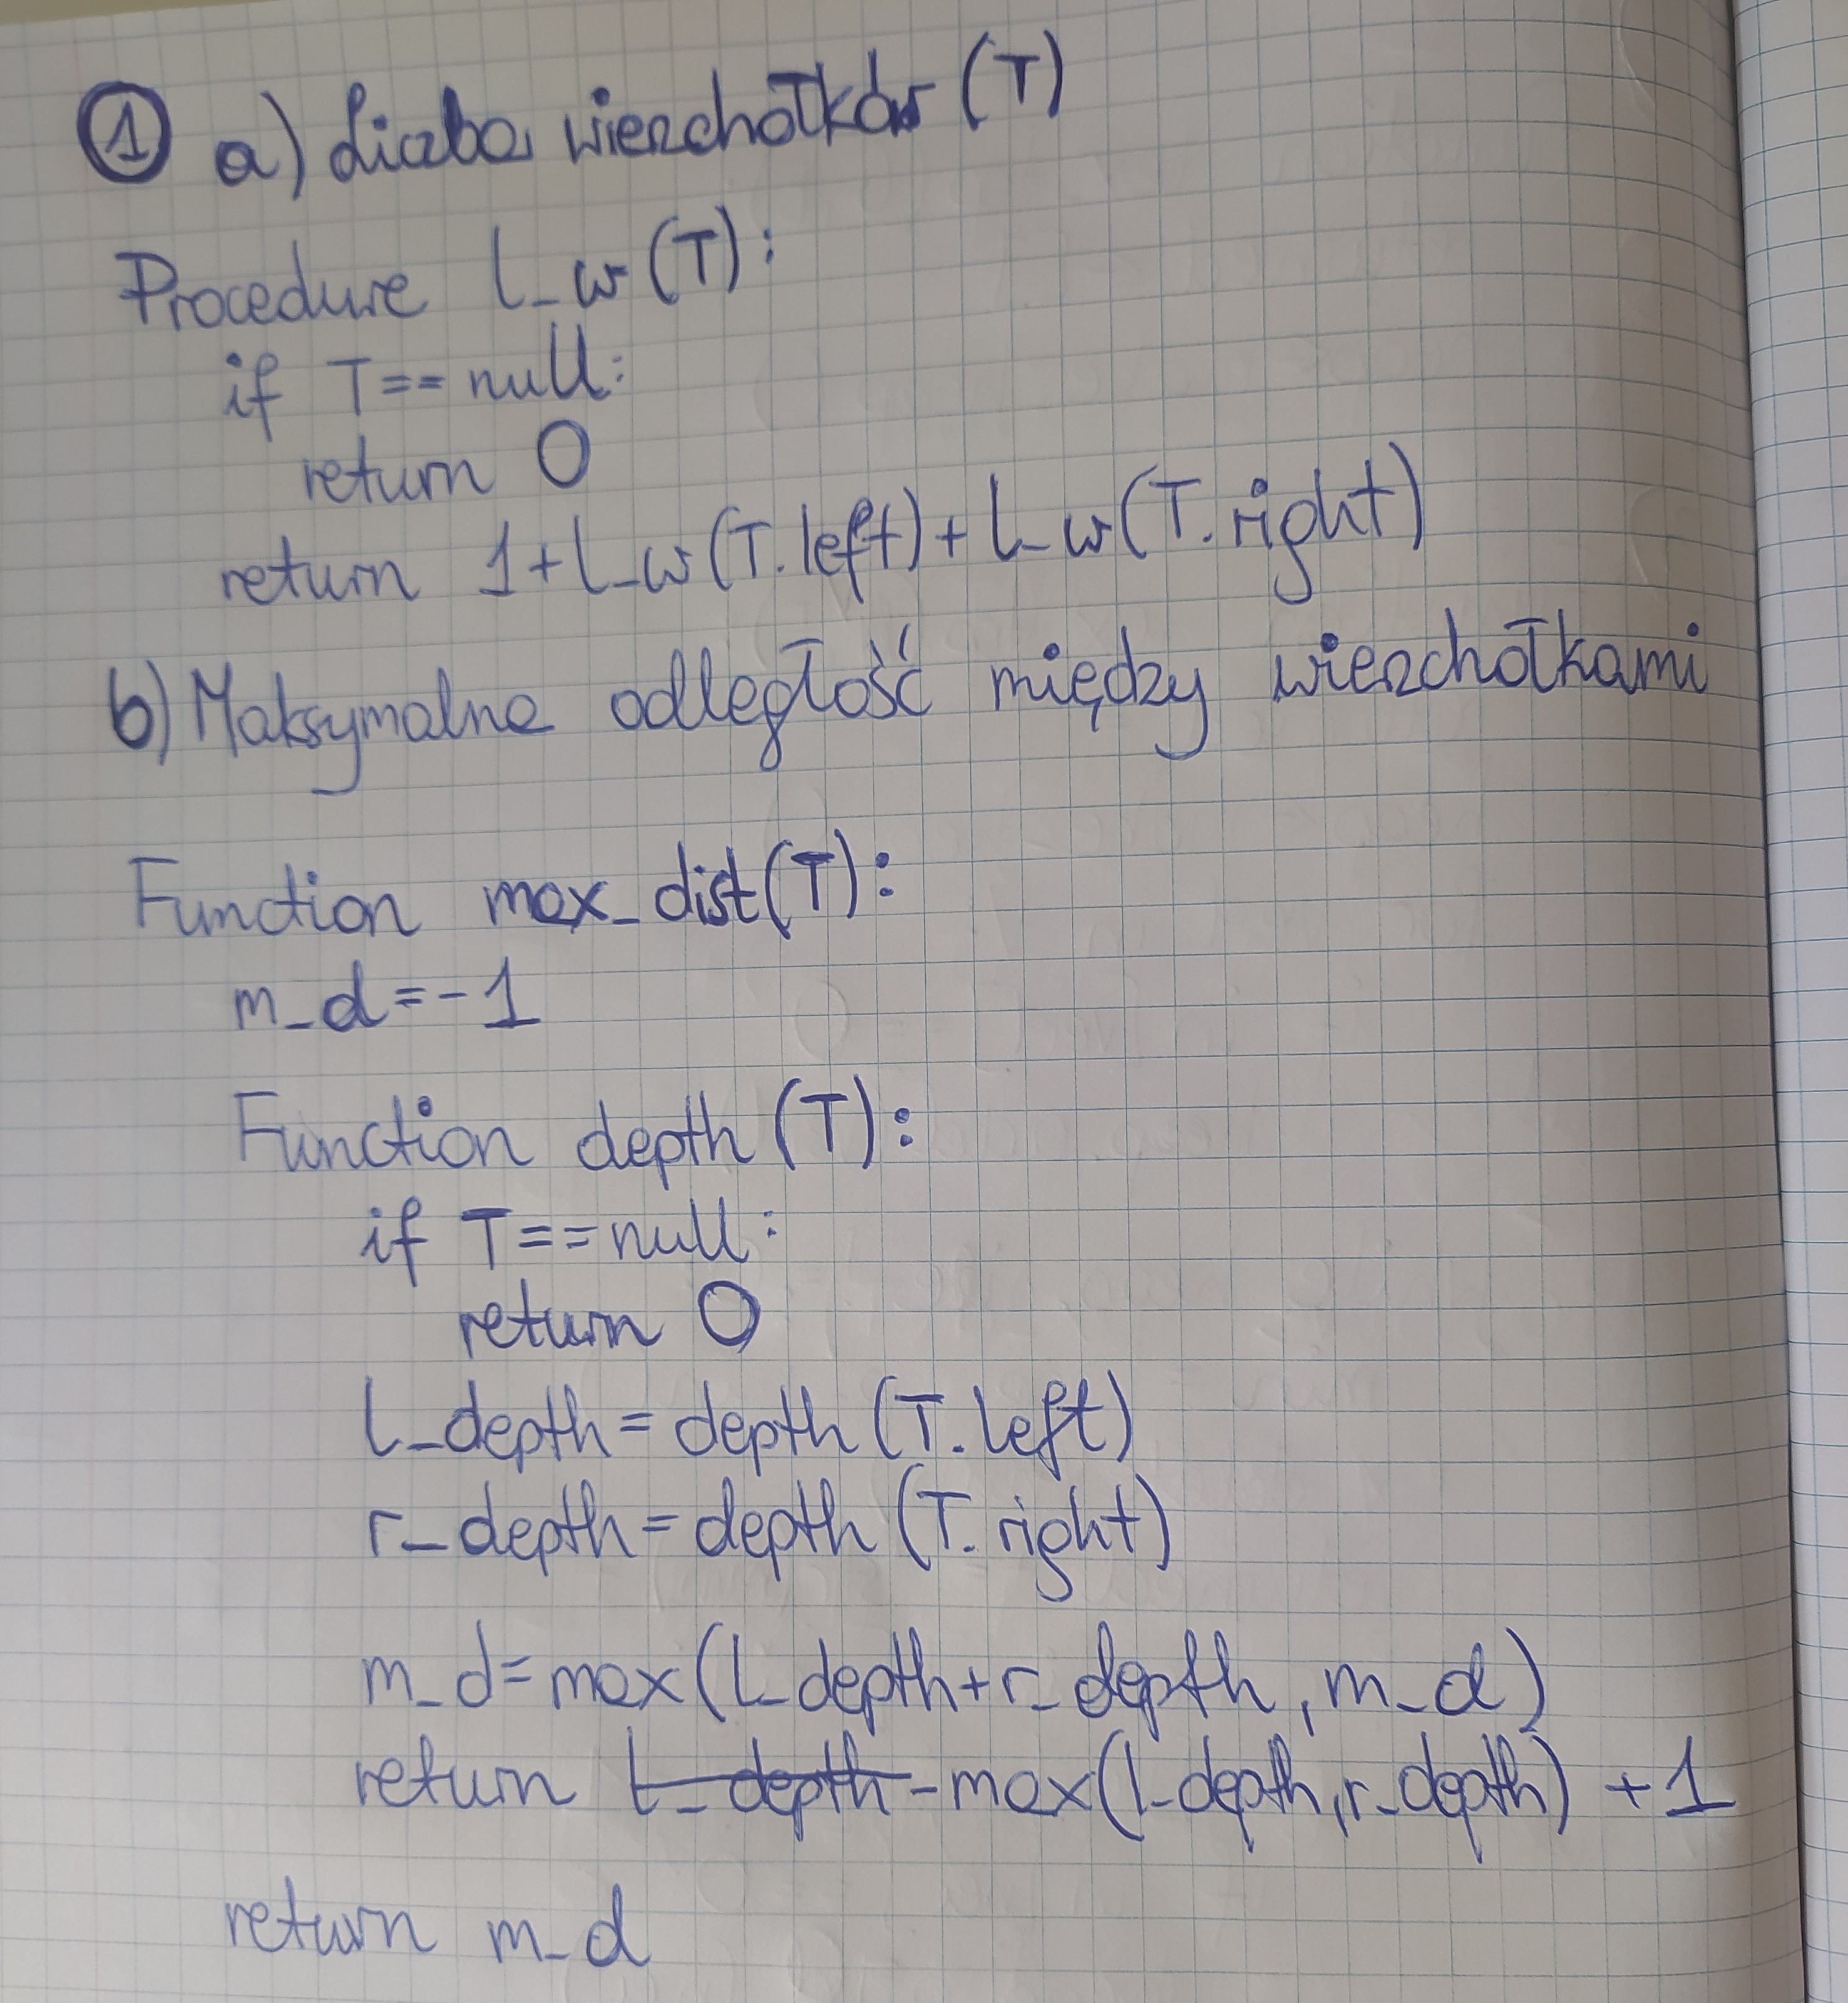 ① a) Liczba wierzchołków (T)
Procedure l_w(T):
if T == null:
return 0
return 1+l_w(T.left)+l_w(T.right)
b) Maksymalna odległość między wierzchołkami
Function max_dist(T):
m_d=-1
Function depth(T):
if T==null:
return 0
l_depth=depth(T.left)
r_depth=depth(T.right)
m_d=max(l_depth+r_depth, m_d)
return l_depth - max(l_depth, r_depth) + 1
return m_d